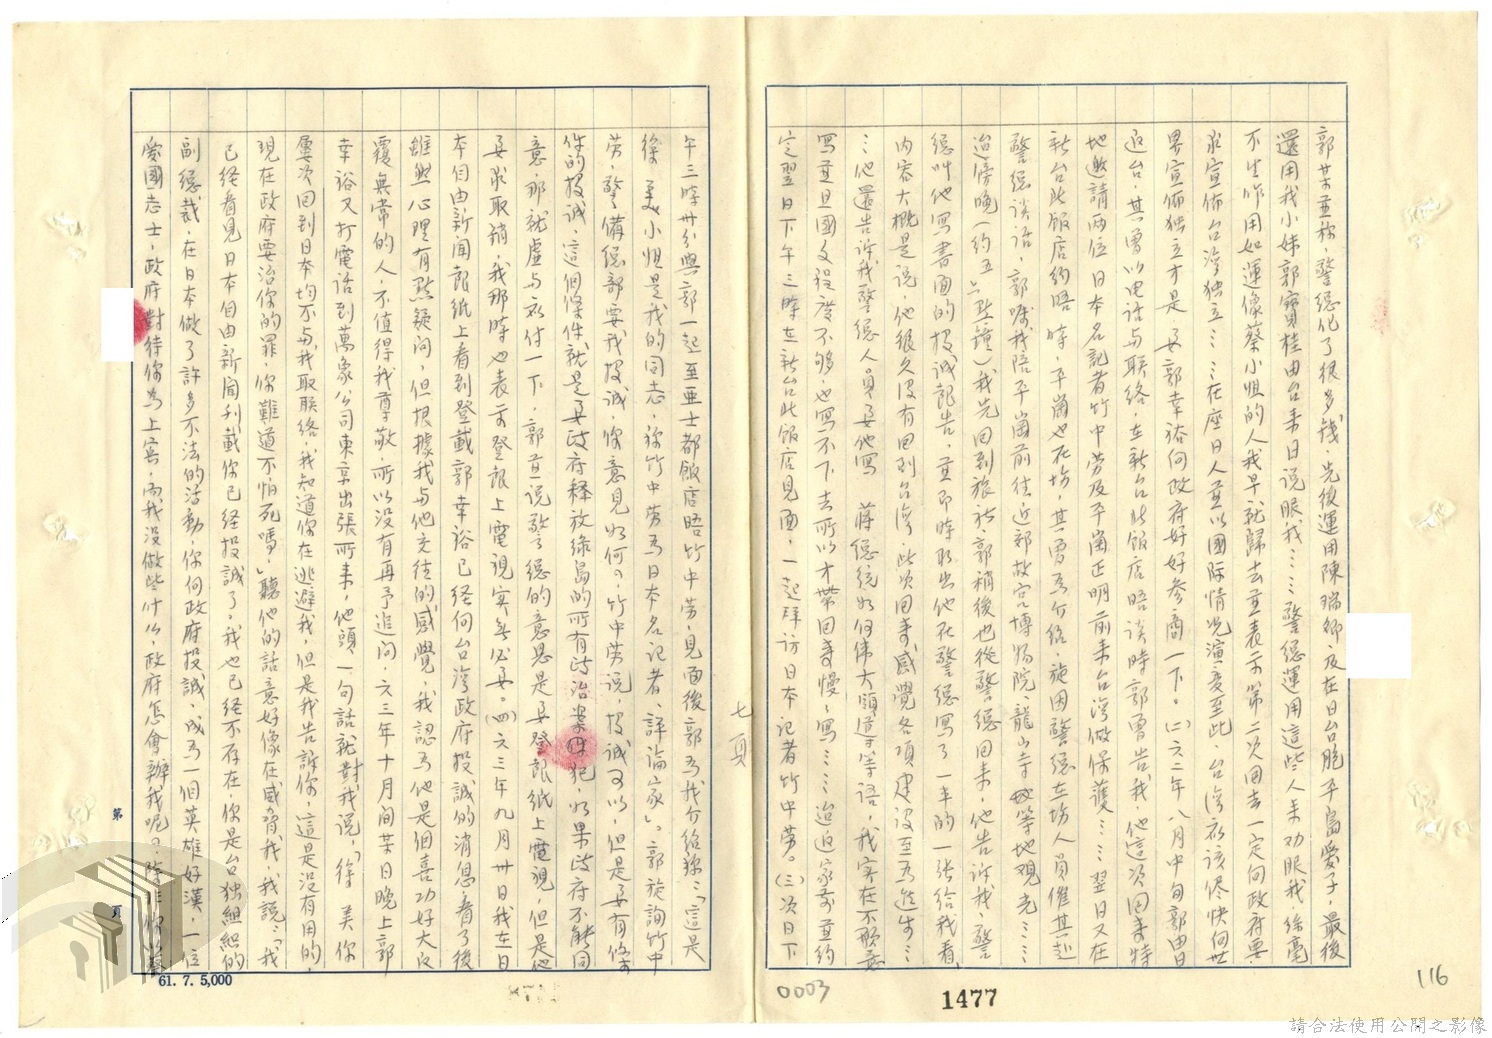 郭某並称，警總化了很多錢，先後運用陳瑞卿及在日台胞平島愛子，最後
還用我小妹郭寶桂由台来日說服我……警總運用這些人来劝服我，絲毫
不生作用如運像蔡小姐的人我早就歸去並表示第二次回去一定向政府要
求宣佈台湾独立……在座日人並以國际情況演变至此，台湾应該尽快向世
界宣佈独立才是要郭幸裕向政府好好参商一下。(二)六二年八月中旬郭由日
返台，其曾以电話与联络，在新台北飯店晤談時郭曾告我，他這次回来特
地邀請兩位日本名記者竹中劳及平崗正明前来台湾做保護……翌日又在
新台北飯店約晤時，平崗也在坊，其曾为介绍，旋因警總在坊人員催其赴
警總談話，郭嘱我陪平崗前往近郊故宫博物院、龍山寺等地观光……
迨傍晚(約五、六點鐘)我先回到旅社郭稍後也從警總回来，他告訴我，警
總叫他写書面的投誠報告，並即時取出他在警總写了一半的一张给我看
内容大概是说，他很久没有回到台湾，此次回来感覺各項建设至为進步…
…他還告訴我警總人員要他写 蔣總统如何偉大領導等語，我实在不願意
写並且國文程度不够也写不下去所以才带回来慢慢写……迨返家前並約
定翌日下午三時在新台北飯店見面，一起拜访日本記者竹中劳。(三)次日下
七頁
午三時卅分與郭一起至亜士都飯店晤竹中劳，見面後郭为我介绍称：「這是
徐美小姐是我的同志，称竹中劳为日本名記者、評論家」。郭旋詢竹中
劳，警備總部要我投诚，你意見如何？竹中劳说，投诚可以，但是要有條
件的投诚，這個條件就是要政府释放绿島的所有政治案件犯，如果政府不能同
意，那就虚与应付一下，郭並说警總的意思是要登報纸上電視，但是他
要求取銷，我那時也表示登报上電視实無必要。(四)六三年九月卅日我在日
本自由新闻報紙上看到登載郭幸裕已经向台湾政府投誠的消息，看了後
雖然心理有點疑问，但根據我与他交往的感覺，我認为他是個喜功好大反
覆無常的人，不值得我尊敬，所以没有再予追问，六三年十月間某日晚上郭
幸裕又打電话到萬象公司東京出張所来，他頭一句話就對我说，「徐美你
屢次回到日本均不与我取联络，我知道你在逃避我，但是我告訴你，這是没有用的，
現在政府要治你的罪，你難道不怕死嗎」，聽他的話意好像在威脅我，我說：「我
已经看見日本自由新聞刊載你已经投誠了，我也已经不存在，你是台独組織的
副總裁，在日本做了許多不法的活動，你向政府投誠，成为一個英雄好漢，一位
愛國志士，政府對待你为上宾，而我没做些什么，政府怎會辦我呢？除非你
第 頁
61. 7. 5,000
0003
1477
116
請合法使用公開之影像